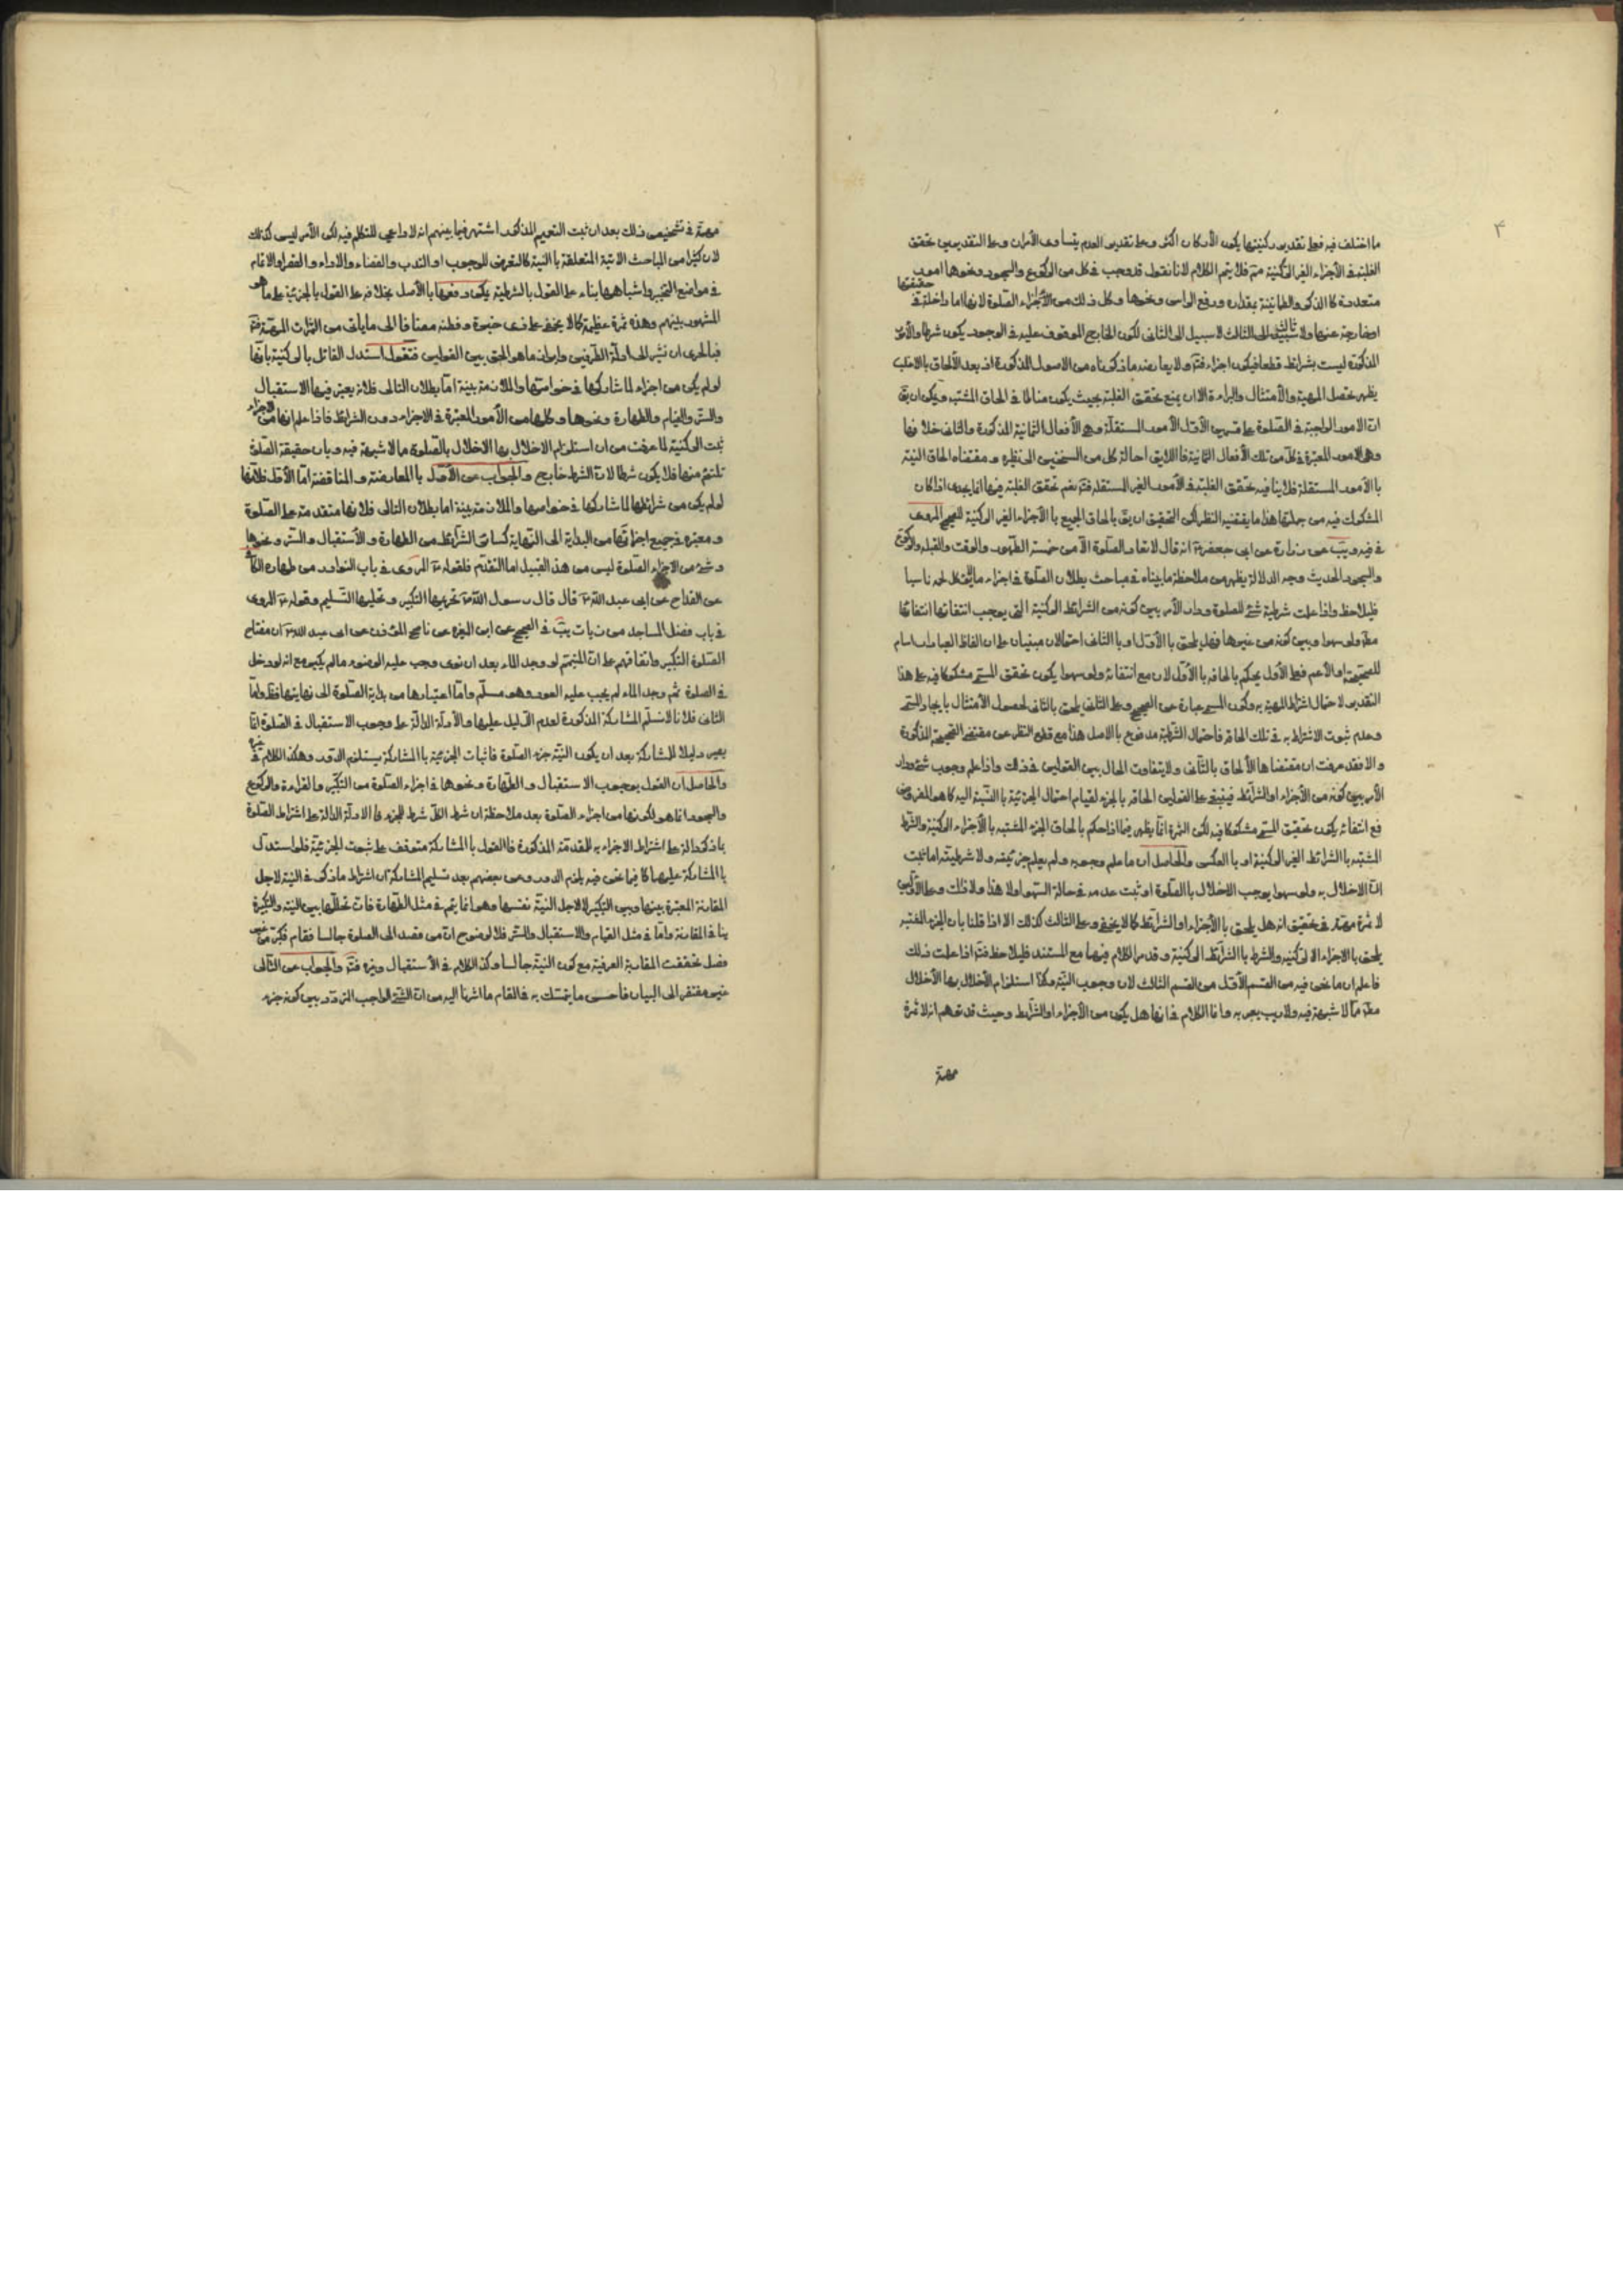 ۳
ما اختلف فيه فعلى تقدير ركنيتها يكون الأركان اكثر وعلى تقدير العدم يتساوى الأمران وعلى التقديرين تحقق
الغلبة في الأجزاء الغير الركنية فلا يتم الكلام لانا نقول قد وجب في كل من الركوع والسجود ونحوها امور
متعددة كالذكر والطمانينة بقداره ورفع الراس ونحوها وكل ذلك من الأجزاء الصلوة لانها اما داخلة في حقيقتها
او خارجة عنها ولا ثالث لا سبيل الى الثاني لكون الخارج الموقوف عليه في الوجود يكون شرطا والأمور
المذكورة ليست بشرائط قطعا فيكون اجزاء ولا يعارضه ما ذكرناه من الاصول المذكورة اذ بعد الألحاق بالاغلب
يظهر حصل المهية والأمتثال والبراءة الا ان يمنع تحقق الغلبة بحيث يكون مناطا في الحاق المشتبه ويمكن ان يق
ان الامور الواجبة في الصلوة على قسمين الأول الأمور المستقلة وهي الأفعال الثمانية المذكورة والثاني خلافها
وهي الامور المعتبرة في كل من تلك الأفعال الثمانية فاللايق احالة كل من السنخين الى نظيره ومقتضاه الحاق النية
بالأمور المستقلة فلا ينافيه تحقق الغلبة في الأمور الغير المستقلة نعم تحقق الغلبة فيها انما يجدى اذا كان
المشكوك فيه من جملتها هذا ما يقتضيه النظر لكن التحقيق ان يق بالحاق الجميع بالأجزاء الغير الركنية للصحيح المروى
في فيه ويب عن زرارة عن ابى جعفر انه قال لا تعاد الصلوة الا من خمسة الطهور والوقت والقبلة والركوع
والسجود الحديث وجه الدلالة يظهر من ملاحظة ما بيناه في مباحث بطلان الصلوة في اجزاء
فليلاحظ واذا علمت شرطية شئ للصلوة ودار الأمر بين كونه من الشرائط الركنية التي يوجب انتفائها انتفائها
مطلقا ولو سهوا وبين كونه من غيرها فهل يلحق بالأول او بالثاني احتمالان مبنيان على ان الفاظ العبادات اسام
للصحيحة او الأعم فعلى الأول يحكم بالحاقه بالأول لان مع انتفائه ولو سهوا يكون تحقق المسمى مشكوكا فيه على هذا
التقدير لاحتمال اشتراط المهية به وكون المسمى عبارة عن الصحيح وعلى الثاني يلحق بالثاني لحصول الأمتثال بايجاد المسمى
وعدم ثبوت الاشتراط به في تلك الحالة فاحتمال الشرطية مدفوع بالاصل هذا مع قطع النظر عن مقتضى الصحيحة المذكورة
والا فقد عرفت ان مقتضاها الألحاق بالثاني ولا يتفاوت الحال بين القولين في ذلك واذا علم وجوب شئ ودار
الأمر بين كونه من الأجزاء او الشرائط فينبغى على القولين الحاقه بالجزء لقيام احتمال الجزئية بالنسبة اليه كما هو المفروض
فمع انتفائه يكون تحقيق المسمى مشكوكا فيه لكن الثمرة انما يظهر فيما اذا حكم بالحاق الجزء المشتبه بالأجزاء الركنية والشرط
المشتبه بالشرائط الغير الركنية او بالعكس والحاصل ان ما علم وجوبه ولم يعلم جزئيته ولا شرطيته اما ثبت
ان الاخلال به ولو سهوا يوجب الاخلال بالصلوة او ثبت عدمه في حالة السهو او لا هذا ولا ذلك وعلى الاولين
لا ثمرة مهمة في تحقيق انه هل يلحق بالأجزاء او الشرائط كما لا يخفى وعلى الثالث كذلك الا اذا قلنا بان الجزء المشتبه
يلحق بالاجزاء الركنية والشرط بالشرائط الركنية وقد مر الكلام فيهما مع المستند فليلاحظ اذا علمت ذلك
فاعلم ان ما نحن فيه من القسم الأول من القسم الثالث لان وجوب النية وكذا استلزام الأخلال بها الأخلال
مطلقا مما لا شبهة فيه ولا ريب يعتريه وانما الكلام في انها هل يكون من الأجزاء او الشرائط وحيث قد توهم انه لا ثمرة
مهمة
مهمة في تشخيص ذلك بعد ان ثبت التعميم المذكور اشتهر فيما بينهم انه لا داعي للتكلم فيه لكن الأمر ليس كذلك
لان كثيرا من المباحث الاتية المتعلقة بالنية كالتعرض للوجوب او الندب والقضاء والاداء والقصر او الاتمام
في مواضع التخيير واشباهها بناء على القول بالشرطية يمكن دفعها بالأصل بخلافه على القول بالجزئية على ما هو
المشهور بينهم وهذه ثمرة عظيمة كما لا يخفى على ذى خبرة وفطنة مضافا الى ما ياتى من الثمرات المهمة
فبالحرى ان نشير الى ادلة الطرفين وايراد ما هو الحق بين القولين فنقول استدل القائل بالركنية بانها
لو لم يكن من اجزاء لما شاركها في خواصها والملازمة بينة اما بطلان التالى فلانه يعتبر فيها الاستقبال
والستر والقيام والطهارة ونحوها وكلها من الأمور المعتبرة في الاجزاء دون الشرائط فاذا علم انها من الاجزاء
ثبت الركنية لما عرفت من ان استلزام الاخلال بها الاخلال بالصلوة مما لا شبهة فيه وبان حقيقة الصلوة
تلتئم منها فلا يكون شرطا لان الشرط خارج والجواب عن الأول بالمعارضة والمناقضة اما الأول فلانها
لو لم يكن من شرائطها لما شاركها في خواصها والملازمة بينة اما بطلان التالى فلانها متقدمة على الصلوة
ومعتبرة في جميع اجزائها من البداية الى النهاية كسائر الشرائط من الطهارة والأستقبال والستر ونحوها
وشئ من الاجزاء الصلوة ليس من هذا القبيل اما التقدم فلقوله المروى في باب النوادر من طهارة الكافى
عن القداح عن ابى عبد الله قال قال رسول الله تحريمها التكبير وتحليلها التسليم وقوله المروى
في باب فضل المساجد من زيات يب في الصحيح عن ابى العزيز عن ناصح المؤذن عن ابى عبد الله ان مفتاح
الصلوة التكبير واتفاقهم على ان المتيمم لو وجد الماء بعد ان نوى وجب عليه الوضوء ما لم يكبر مع انه لو دخل
في الصلوة ثم وجد الماء لم يجب عليه العود وهو مسلم واما اعتبارها من بداية الصلوة الى نهايتها فظ واما
الثاني فلانا لا نسلم المشاركة المذكورة لعدم الدليل عليها والأدلة الدالة على وجوب الاستقبال في الصلوة انما
يصير دليلا للمشاركة بعد ان يكون النية جزء الصلوة فاثبات الجزئية بالمشاركة يستلزم الدور وهكذا الكلام في غيره
والحاصل ان القول بوجوب الاستقبال والطهارة ونحوها في اجزاء الصلوة من التكبير والقراءة والركوع
والسجود انما هو لكونها من اجزاء الصلوة بعد ملاحظة ان شرط الكل شرط للجزء فالادلة الدالة على اشتراط الصلوة
بما ذكر دالة على اشتراط الاجزاء به للمقدمة المذكورة فالقول بالمشاركة متوقف على ثبوت الجزئية فلو استدل
بالمشاركة عليها كما فيما نحن فيه يلزم الدور وعن بعضهم بعد تسليم المشاركة ان اشتراط ما ذكر في النية لاجل
المقارنة المعتبرة بينها وبين التكبير لا لاجل النية نفسها وهو انما يتم في مثل الطهارة فان تخللها بين النية والتكبيرة
ينافي المقارنة واما في مثل القيام والاستقبال والستر فلا لوضوح ان من قصد الى الصلوة جالسا فقام فكبر من غير
فصل تحققت المقارنة العرفية مع كون النية جالسا وكذا الكلام في الأستقبال وغيره والجواب عن الثانى
غير مفتقر الى البيان فاحسن ما يتمسك به في المقام ما اشرنا اليه من ان الشئ الواجب المردد بين كونه جزء